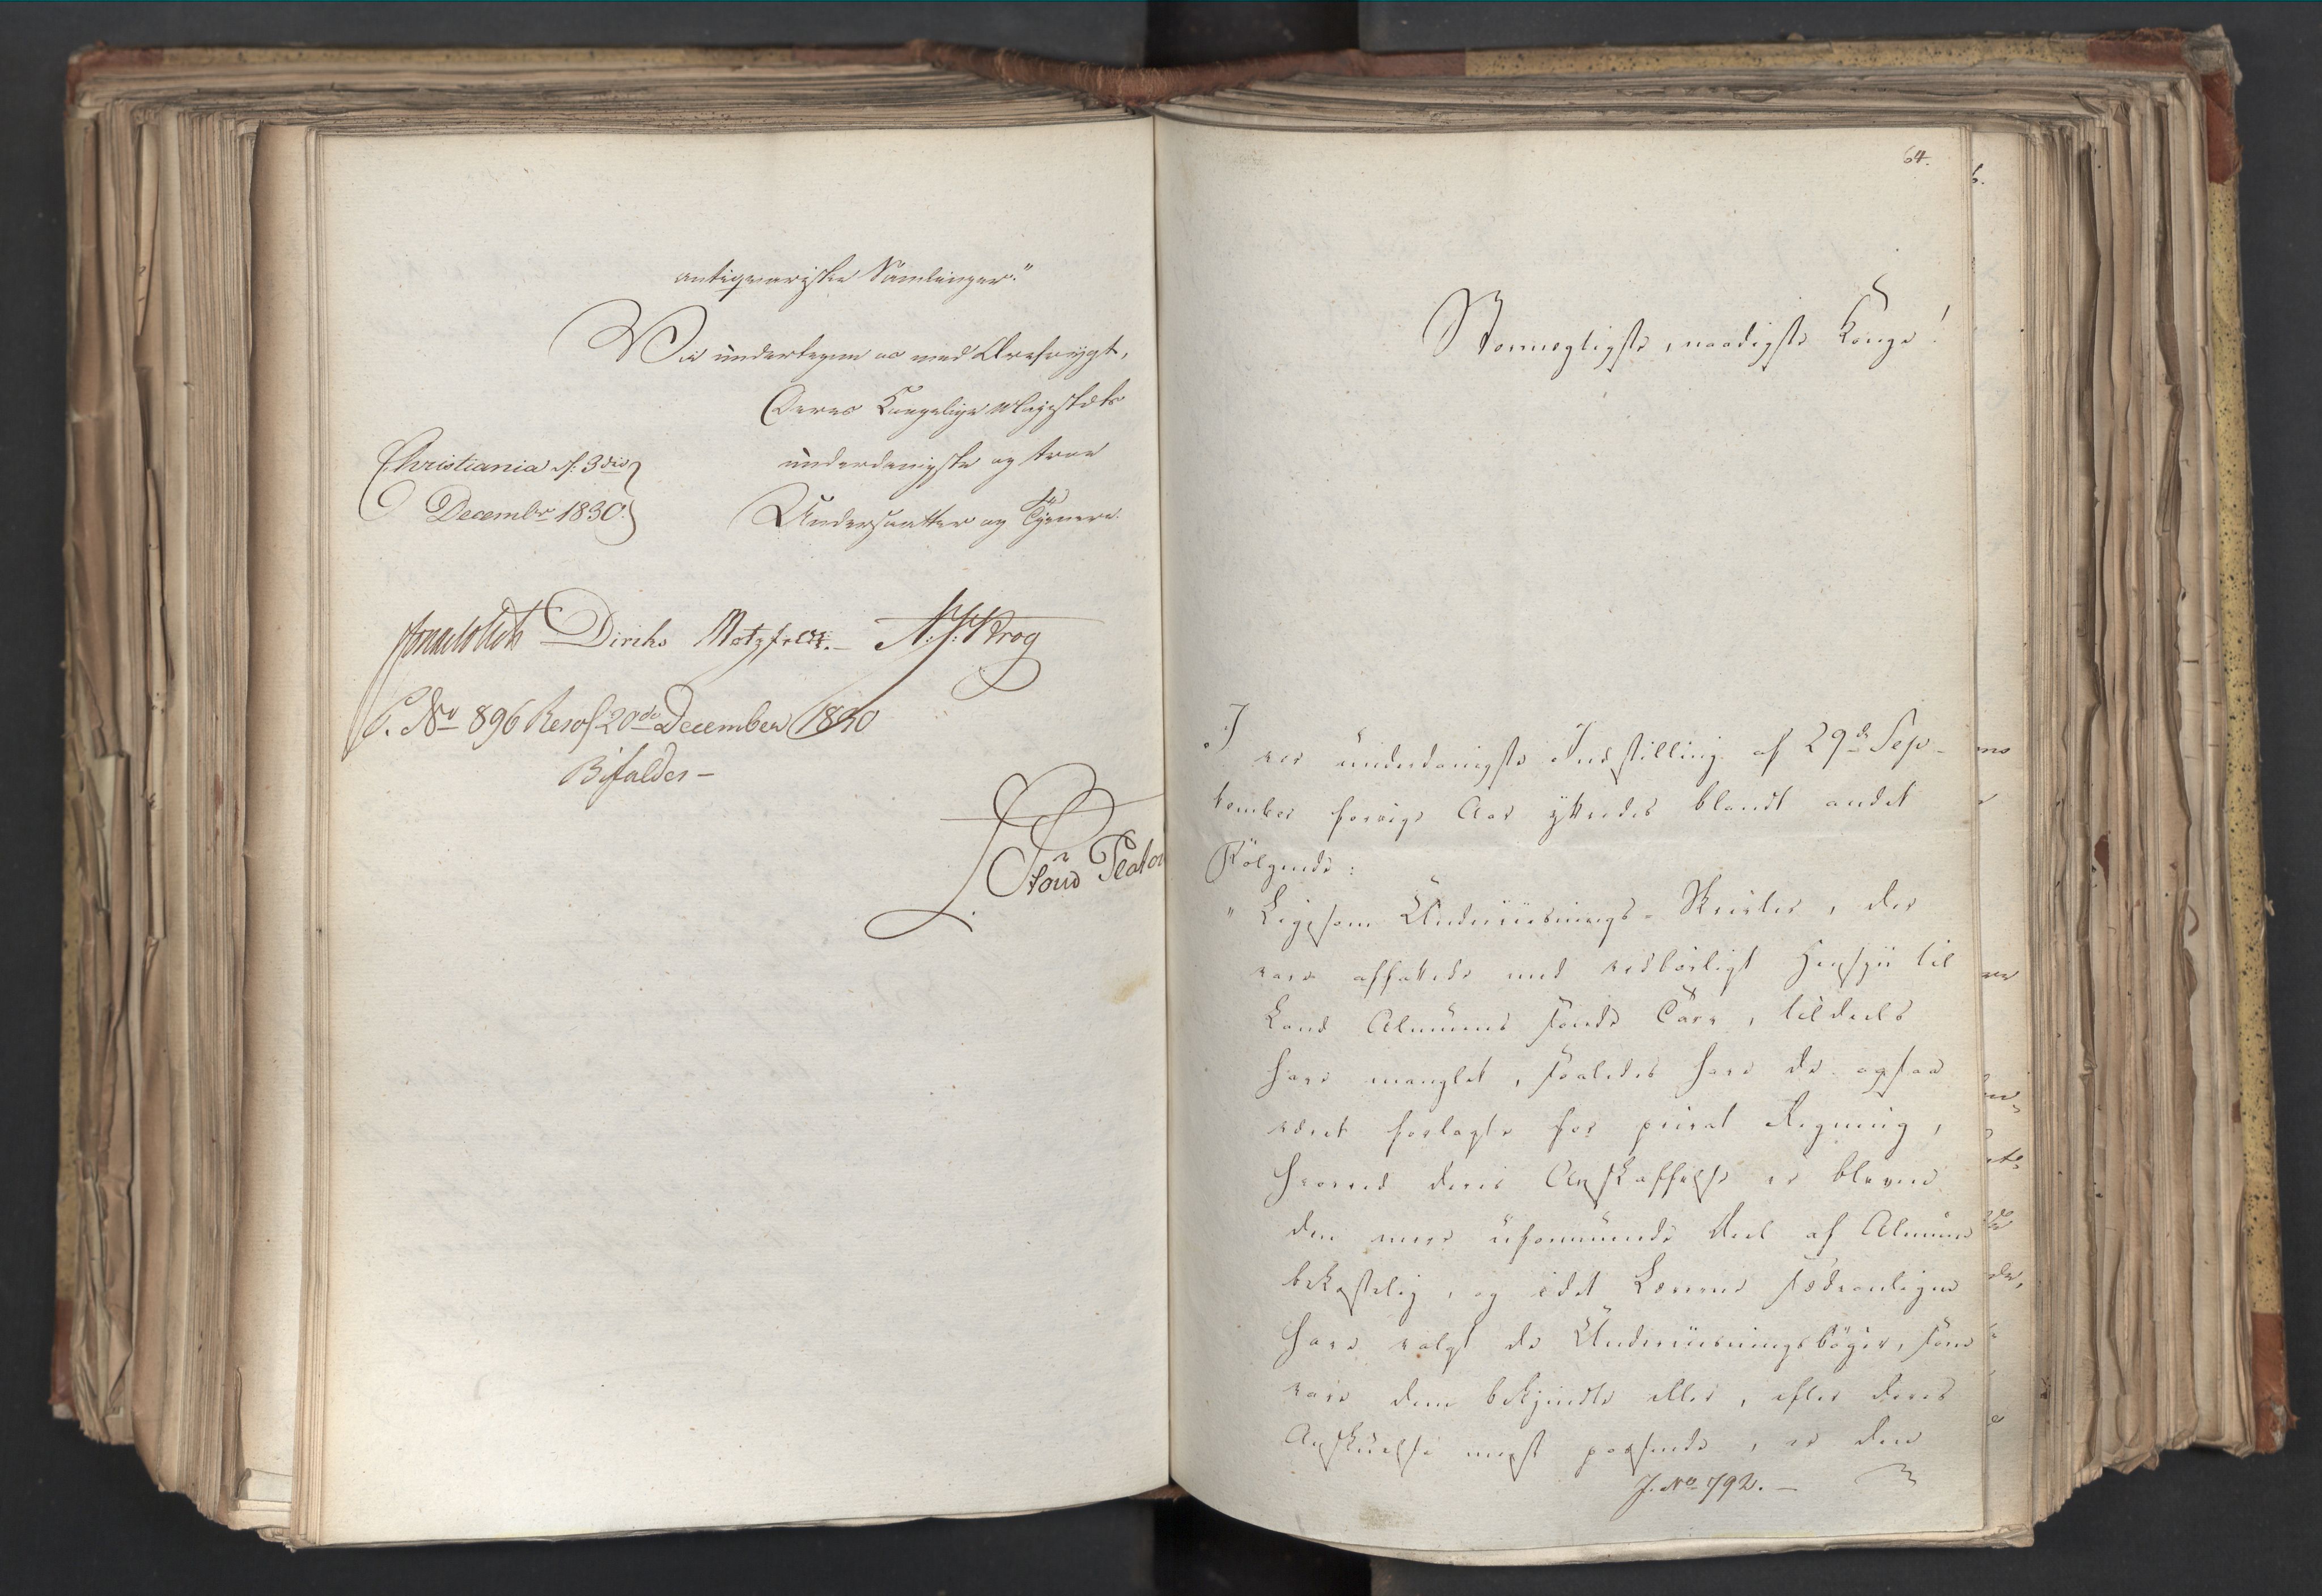 antiqvariske Samlinger."
Vi undertegne os med Ærefrygt,
Deres Kongelige Majestæts
underdanigste og troe
Undersaatter og Tjenere.
Christiania d: 3die
Decembr 1830.
Jonas Collett Diriks Motzfeldt.— N. J. Krog
P. No 896 Resol. 20de December 1830
Bifaldes—
64.
Stormægtigste, naadigste Konge!
I vor underdanigste Indstilling af 29de Sep-
tember forrige Aar yttredes blandt andet
Følgende:
"Ligesom Underviisnings-Skrifter, der
vare affattede med vedbørligt Hensyn til
Land Almuens sande Tarv, tildeels
have manglet, saaledes have de ogsaa
været forlagte for privat Regning,
hvorved deres Anskaffelse er bleven
den mere uformuende Deel af Almuen
bekostelig, og idet Lærerne sædvanligen
have valgt de Underviisningsbøger, som
vare dem bekjendte eller, efter deres
Anskuelse meest passende, er den
J. No 792.—